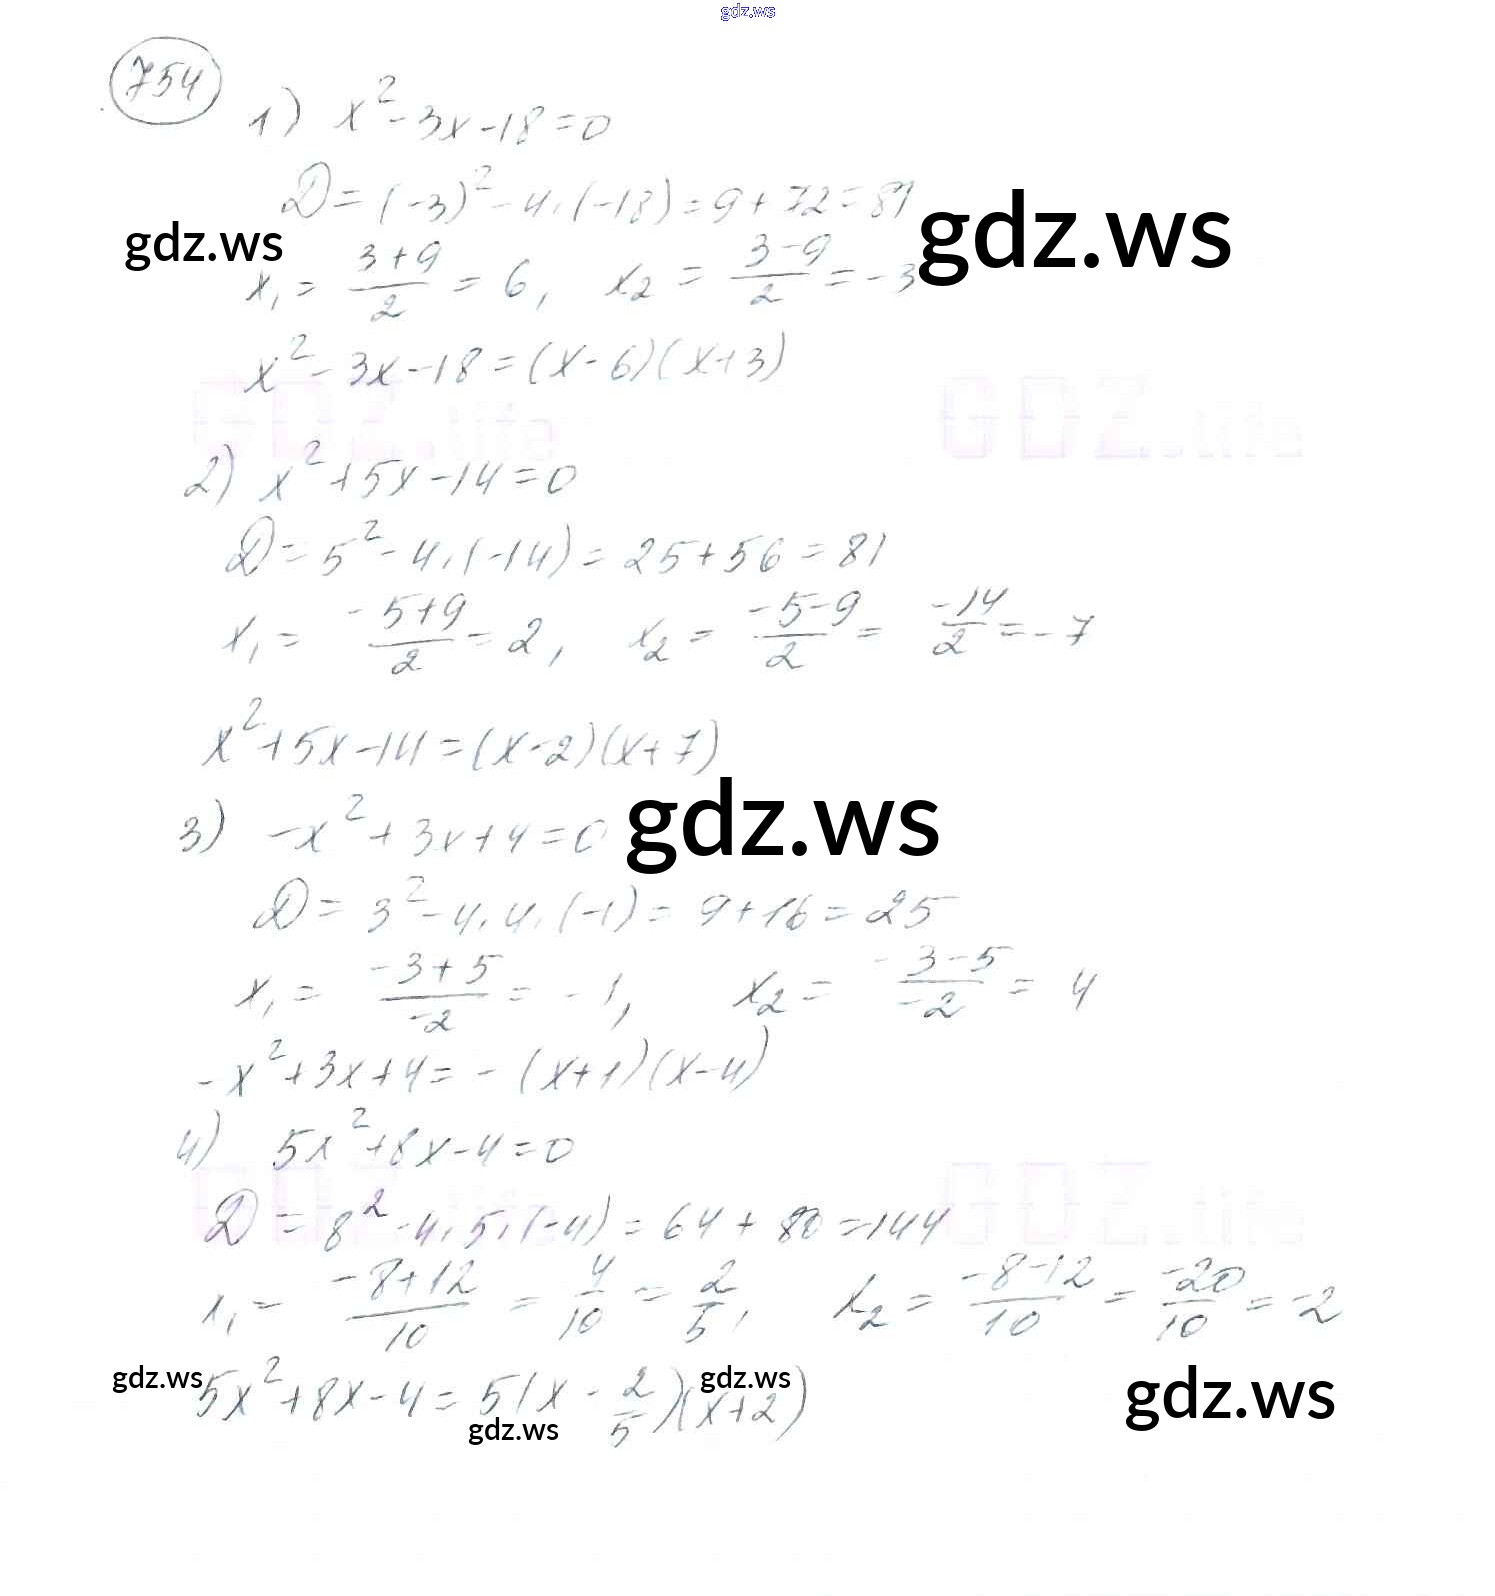 gdz.ws
754
1) x² - 3x - 18 = 0
D = (-3)² - 4·(-18) = 9 + 72 = 81
gdz.ws
gdz.ws
x₁ = (3+9)/2 = 6, x₂ = (3-9)/2 = -3
x² - 3x - 18 = (x-6)(x+3)
GDZ.life
GDZ.life
2) x² + 5x - 14 = 0
D = 5² - 4·(-14) = 25 + 56 = 81
x₁ = (-5+9)/2 = 2, x₂ = (-5-9)/2 = -14/2 = -7
x² + 5x - 14 = (x-2)(x+7)
3) -x² + 3x + 4 = 0
gdz.ws
D = 3² - 4·4·(-1) = 9 + 16 = 25
x₁ = (-3+5)/-2 = -1, x₂ = (-3-5)/-2 = 4
-x² + 3x + 4 = -(x+1)(x-4)
4) 5x² + 8x - 4 = 0
GDZ.life
GDZ.life
D = 8² - 4·5·(-4) = 64 + 80 = 144
x₁ = (-8+12)/10 = 4/10 = 2/5, x₂ = (-8-12)/10 = -20/10 = -2
gdz.ws
gdz.ws
gdz.ws
5x² + 8x - 4 = 5(x - 2/5)(x+2)
gdz.ws